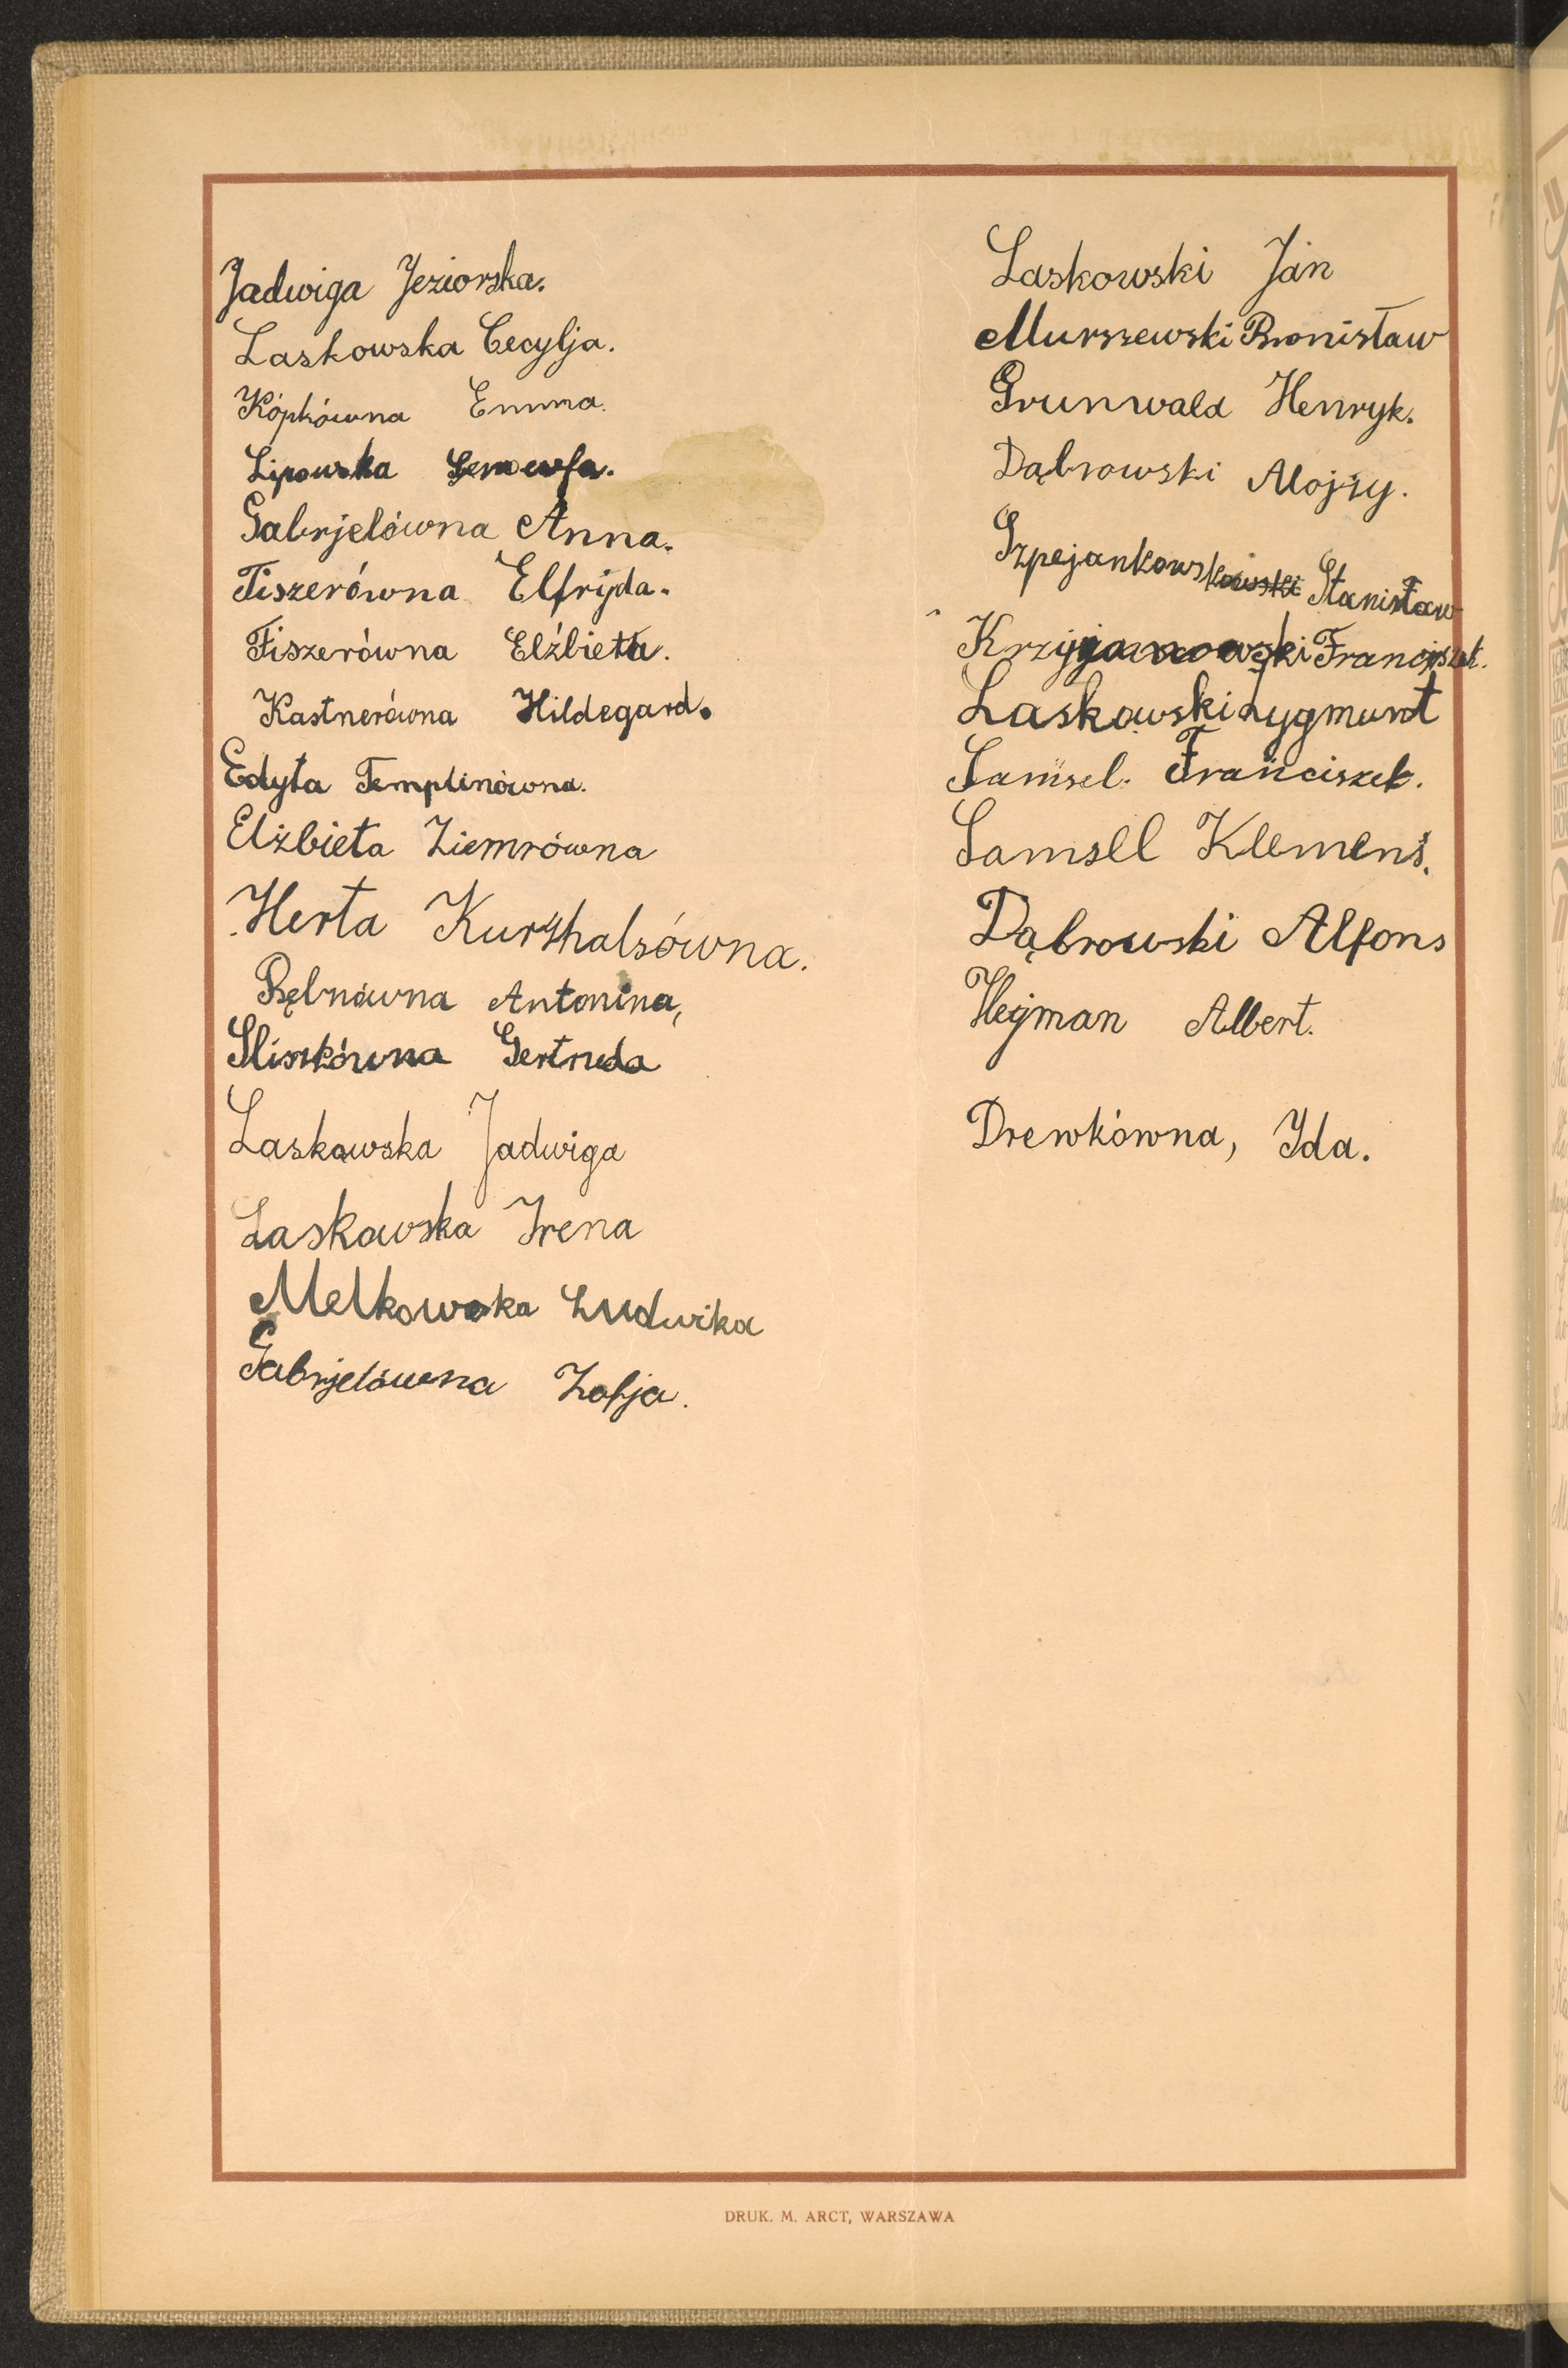 Jadwiga Jeziorska.
Laskowska Cecylja.
Kópkówna Emma.
Lipowska Genowefa.
Gabrjelówna Anna.
Fiszerówna Elfryda.
Fiszerówna Elżbieta.
Kastnerówna Hildegard.
Edyta Templinówna.
Elżbieta Ziemrówna
Herta Kurzhalsówna.
Rębnówna Antonina,
Śliszkówna Gertruda
Laskowska Jadwiga
Laskowska Irena
Melkowska Ludwika
Gabrjelówna Zofja.
Laskowski Jan
Murszewski Bronisław
Grunwald Henryk.
Dąbrowski Alojzy.
Szpejankowski Stanisław
Krzyżanowski Franciszek.
Laskowski Zygmunt
Samsel. Franciszek.
Samsel Klemens.
Dąbrowski Alfons
Hejman Albert.
Drewkówna, Ida.
DRUK. M. ARCT, WARSZAWA